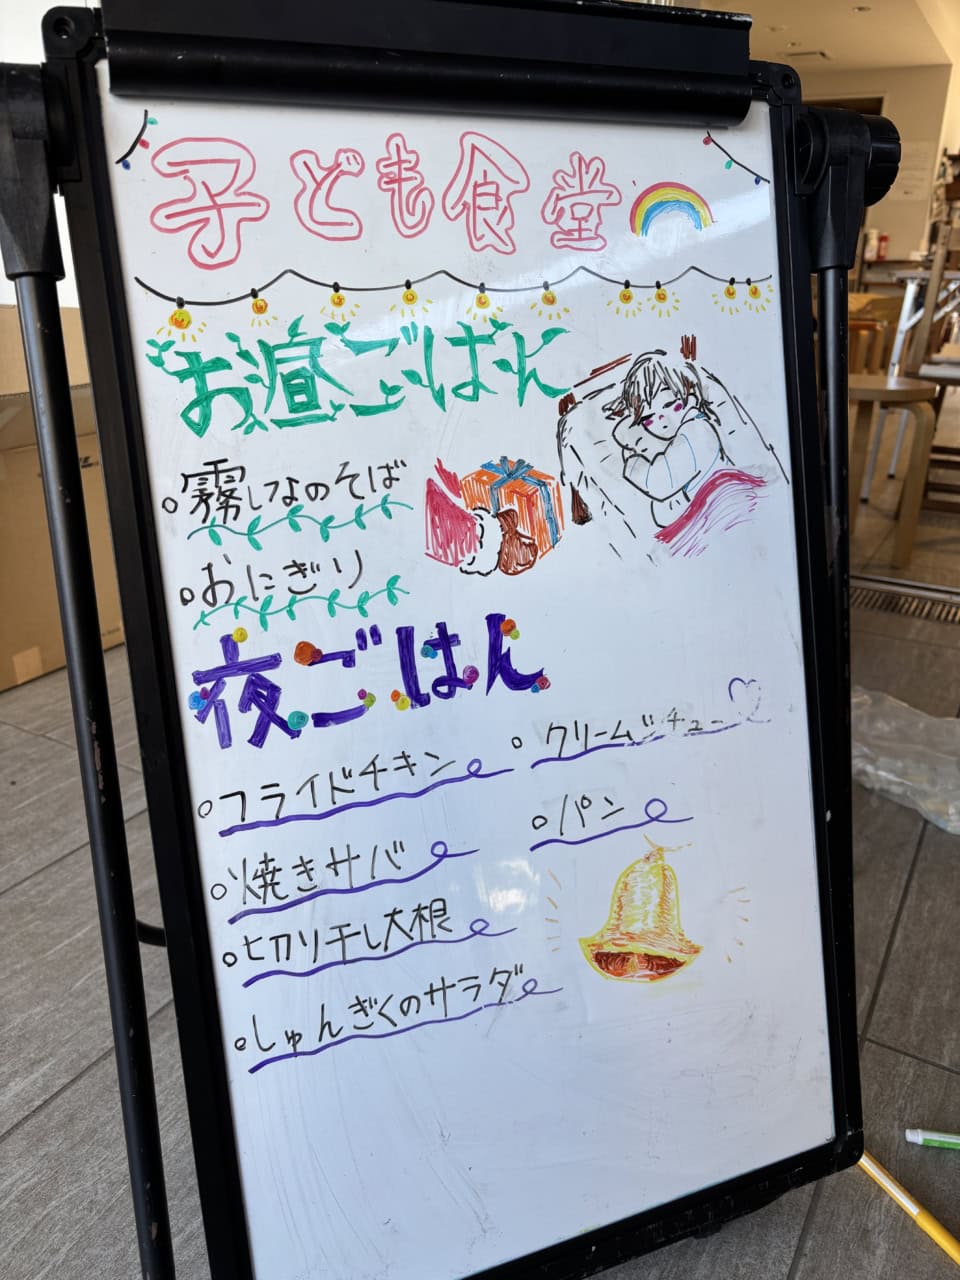 子ども食堂
お昼ごはん
○霧しなのそば
○おにぎり
夜ごはん
○フライドチキン
○クリームシチュー♡
○焼きサバ
○パン
○切り干し大根
○しゅんぎくのサラダ